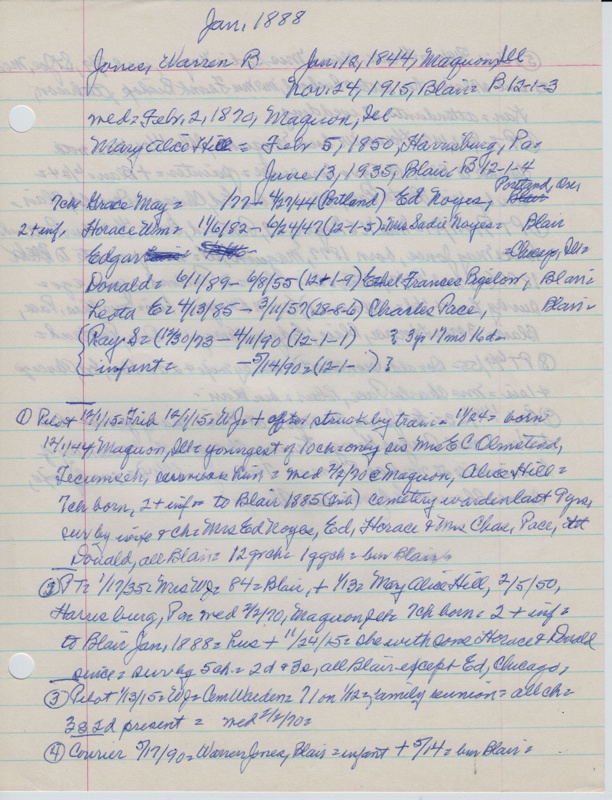 Jan, 1888
Jones, Warren B Jan, 12, 1844, Maquon, Ill
Nov. 24, 1915, Blair = B 12-1-3
med = Febr, 2, 1870, Maquon, Ill
Mary Alice Hill = Febr 5, 1850, Harrisburg, Pa,
June 13, 1935, Blair, B 12-1-4
7ch = Grace May = /77 - 4/27/44 (Portland) Ed Noyes, Portland, Ore,
2 + inf, Horace Wm = 11/6/82 - 6/24/47 (12-1-5) = Mrs Sadie Noyes = Blair
Edgar = Chicago, Ill =
Donald = 6/1/89 - 6/8/55 (12-1-9) Ethel Frances Bigelow, Blair =
Leota E = 4/13/85 - 3/11/57 (28-8-6) Charles Pace, Blair =
Ray S = (1/30/73 - 4/11/90 (12-1-1) } 3 yr 17 md
infant = - 5/14/90 = (12-1- ) }
① Pilot 12/1/15 = Trib 12/1/15 = WJ = + after struck by train = 11/24 = born
12/1/44 Maquon, Ill = youngest of 10 ch = only sis Mrs E C Olmstead,
Tecumseh, survives him = med 2/2/70 @ Maquon, Alice Hill =
7ch born, 2 + inf = to Blair 1885 (Trib) cemetery warden last 9 yrs,
sur by wife & ch = Mrs Ed Noyes, Ed, Horace & Mrs Chas, Pace,
Donald, all Blair = 12 grch = 1 ggch = bur Blair =
② PT = 1/17/35 = Mrs WJ = 84 = Blair, + 1/13 = Mary Alice Hill, 2/5/50,
Harrisburg, Pa = med 2/2/70, Maquon, Ill = 7ch born = 2 + inf =
to Blair Jan, 1888 = hus + 11/24/15 = she with sons Horace & Donald
since = sur by 5 ch = 2d & 3s, all Blair except Ed, Chicago,
③ Pilot 1/13/15 = WJ = Cem Warden = 71 on 1/12 = family reunion = all ch =
3s 2d present = med 2/2/70 =
④ Courier 5/17/90 = Warren Jones, Blair = infant + 5/14 = bur Blair =